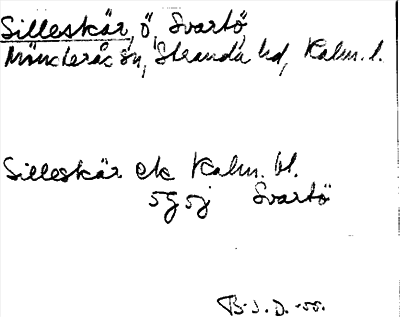 Silleskär, ö, Svartö,
Mönsterås sn, Stranda hd, Kalm. l.
Silleskär ek Kalm. bl.
5g5j Svartö
B.J.D. -55.